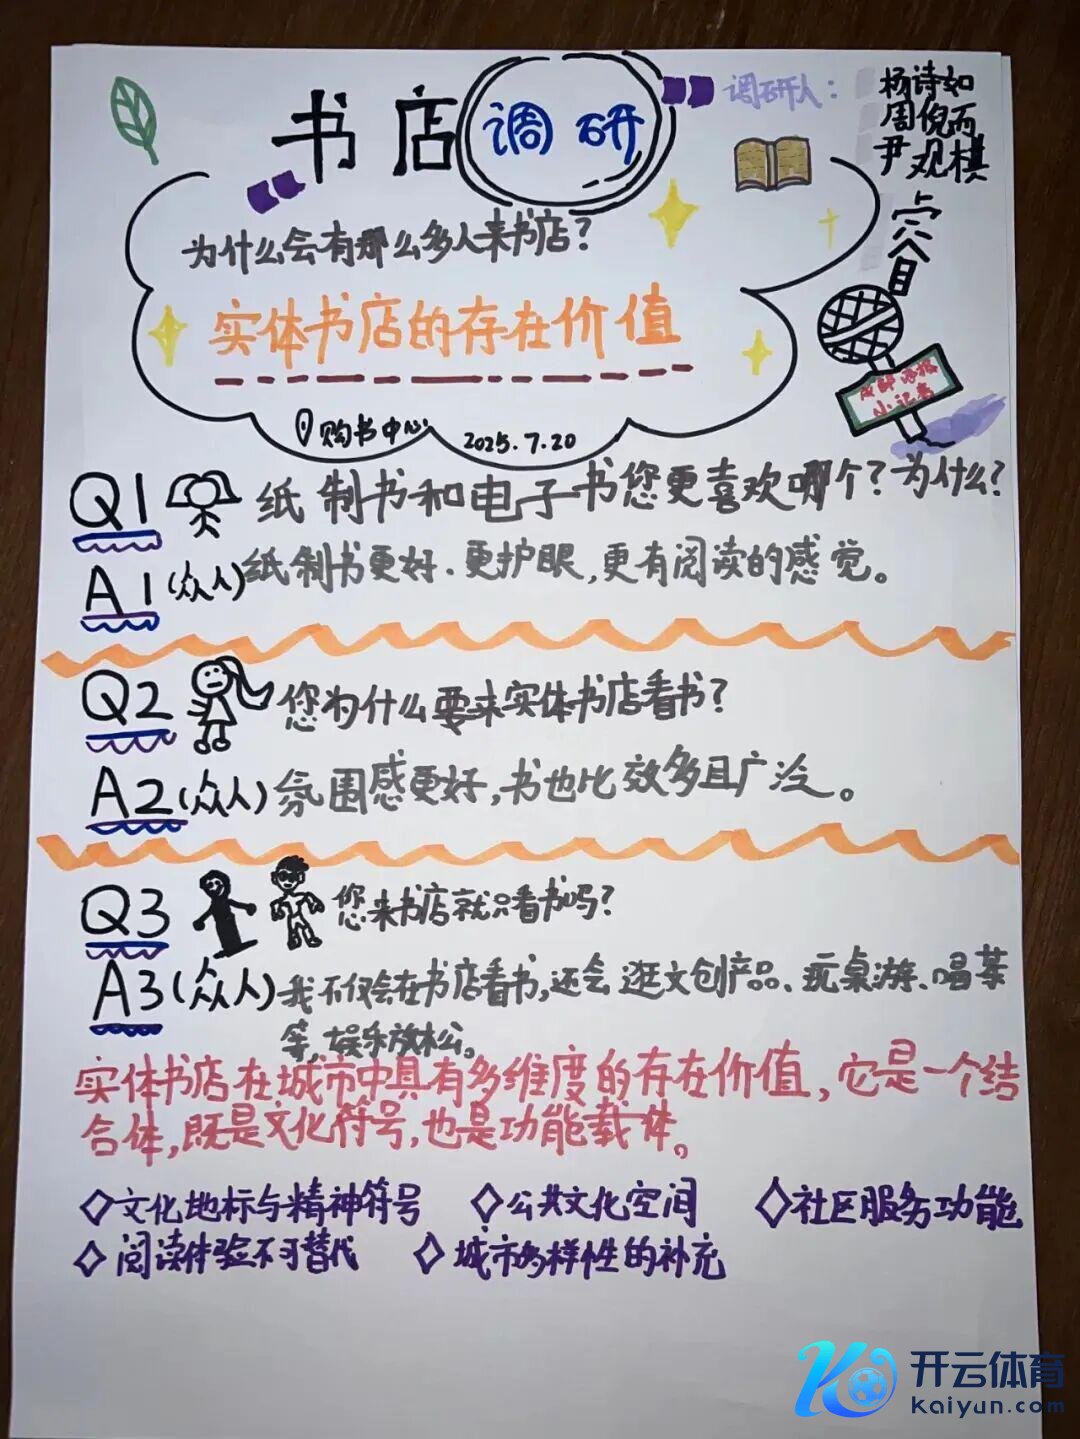 书店调研
调研人：
杨诗如
周倪而
尹观棋
为什么会有那么多人来书店？
实体书店的存在价值
购书中心 2025.7.20
小记者
Q1 纸制书和电子书您更喜欢哪个？为什么？
A1（众人）纸制书更好．更护眼，更有阅读的感觉。
Q2 您为什么要来实体书店看书？
A2（众人）氛围感更好，书也比较多且广泛。
Q3 您来书店就只看书吗？
A3（众人）我不仅会在书店看书，还会逛文创产品、玩桌游、喝茶
等，娱乐放松。
实体书店在城市中具有多维度的存在价值，它是一个结
合体，既是文化符号，也是功能载体。
◇文化地标与精神符号 ◇公共文化空间 ◇社区服务功能
◇阅读体验不可替代 ◇城市多样性的补充
开云体育
kaiyun.com